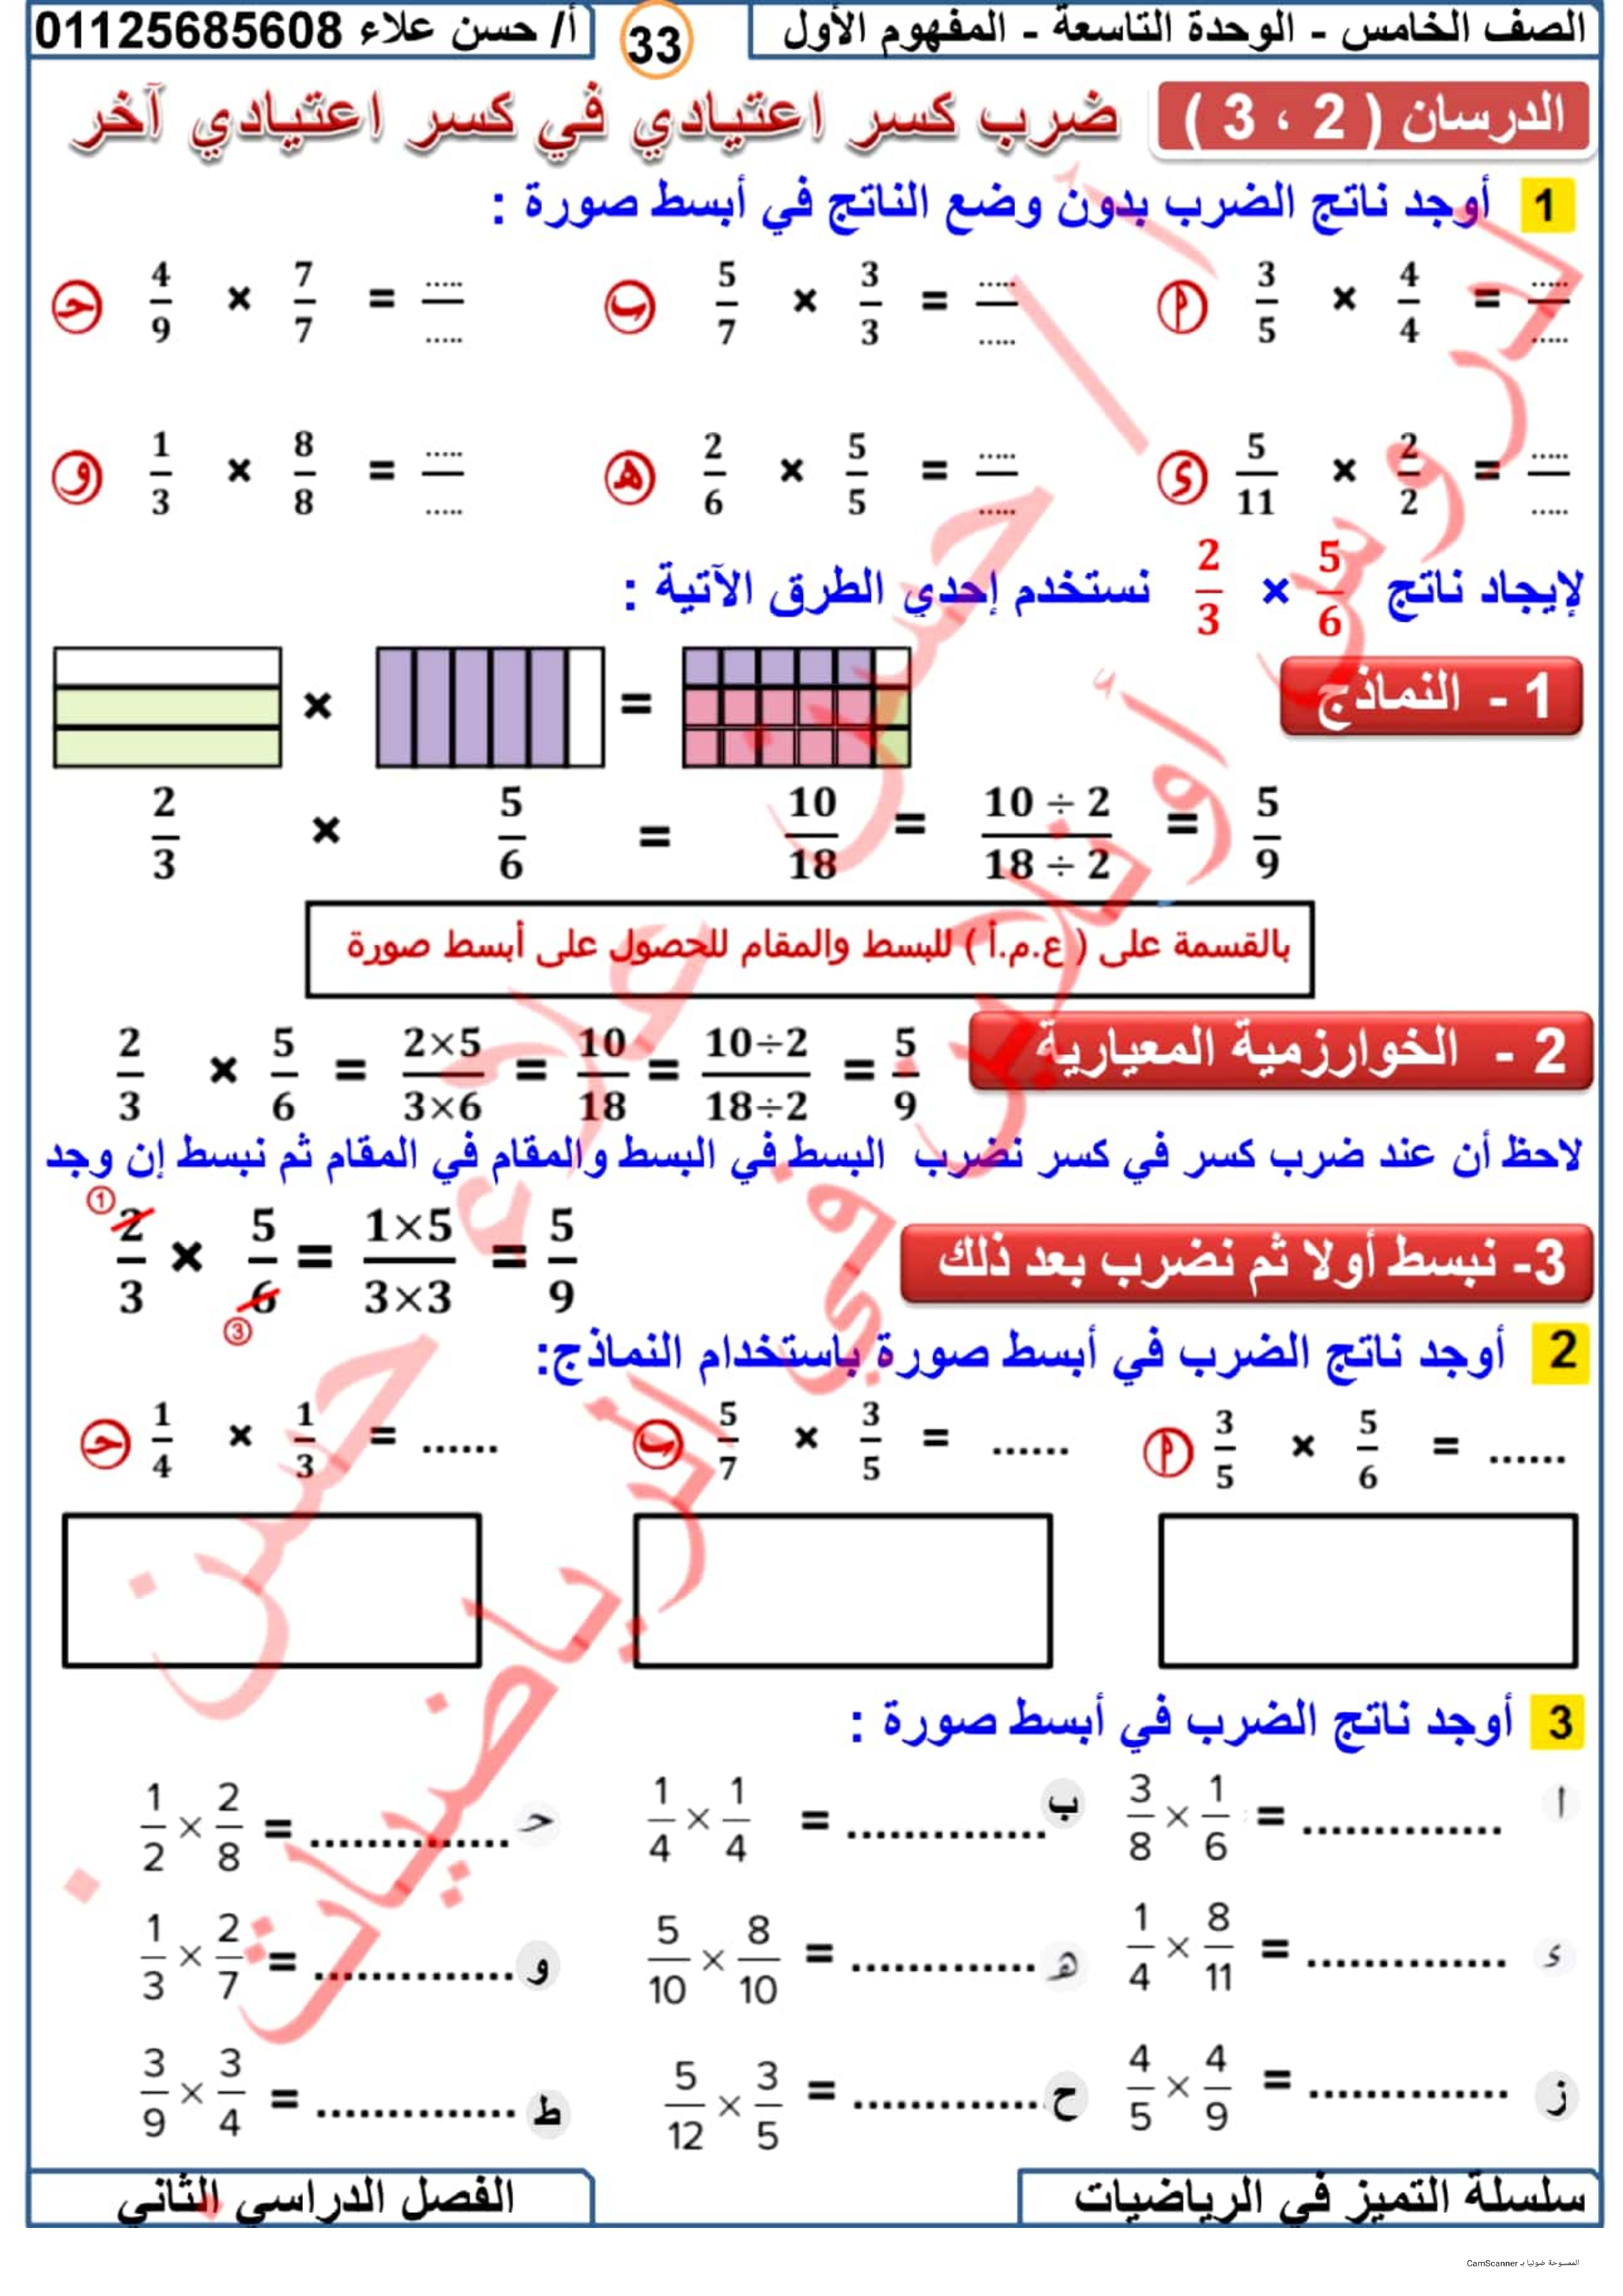 الصف الخامس - الوحدة التاسعة - المفهوم الأول
33
أ/ حسن علاء 01125685608
الدرسان ( 2 ، 3 ) ضرب كسر اعتيادي في كسر اعتيادي آخر
1 أوجد ناتج الضرب بدون وضع الناتج في أبسط صورة :
أ 3/5 × 4/4 = ...../.....
ب 5/7 × 3/3 = ...../.....
حـ 4/9 × 7/7 = ...../.....
ء 5/11 × 2/2 = ...../.....
هـ 2/6 × 5/5 = ...../.....
و 1/3 × 8/8 = ...../.....
لإيجاد ناتج 5/6 × 2/3 نستخدم إحدي الطرق الآتية :
1 - النماذج
× =
2/3 × 5/6 = 10/18 = 10 ÷ 2/18 ÷ 2 = 5/9
بالقسمة على ( ع.م.أ ) للبسط والمقام للحصول على أبسط صورة
2 - الخوارزمية المعيارية
2/3 × 5/6 = 2×5/3×6 = 10/18 = 10÷2/18÷2 = 5/9
لاحظ أن عند ضرب كسر في كسر نضرب البسط في البسط والمقام في المقام ثم نبسط إن وجد
3- نبسط أولا ثم نضرب بعد ذلك
① 2/3 × 5/6 ③ = 1×5/3×3 = 5/9
2 أوجد ناتج الضرب في أبسط صورة باستخدام النماذج:
أ 3/5 × 5/6 = ......
ب 5/7 × 3/5 = ......
حـ 1/4 × 1/3 = ......
3 أوجد ناتج الضرب في أبسط صورة :
ا 3/8 × 1/6 = ..............
ب 1/4 × 1/4 = ..............
حـ 1/2 × 2/8 = ..............
ء 1/4 × 8/11 = ..............
هـ 5/10 × 8/10 = .............
و 1/3 × 2/7 = ..............
ز 4/5 × 4/9 = ..............
ح 5/12 × 3/5 = ..............
ط 3/9 × 3/4 = ..............
سلسلة التميز في الرياضيات
الفصل الدراسي الثاني
الممسوحة ضوئيا بـ CamScanner